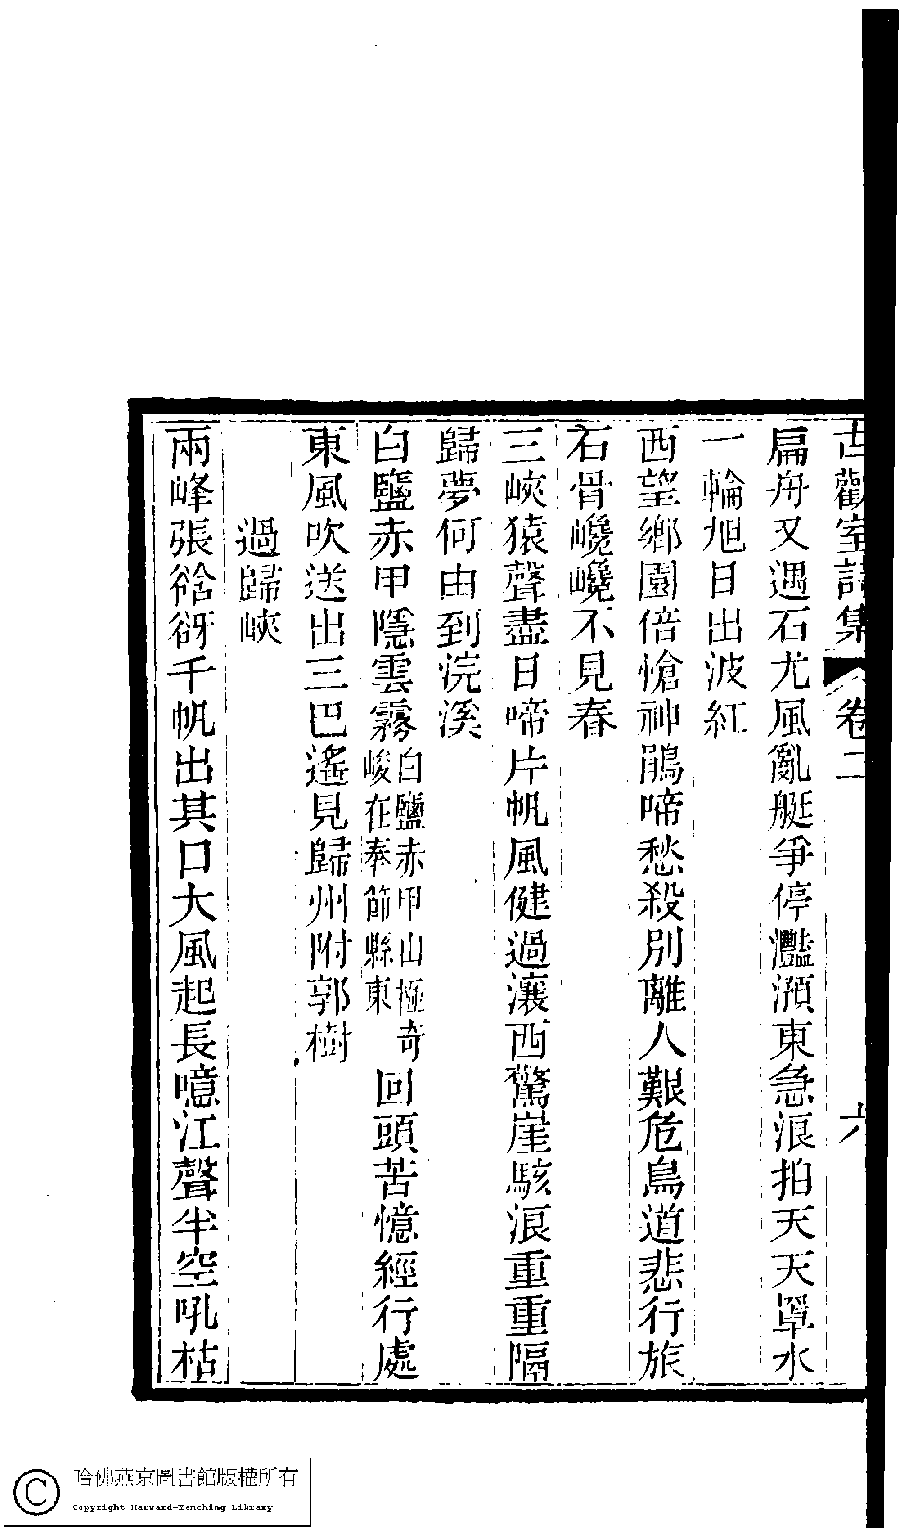 古歡室詩集 卷二 六
扁舟又遇石尤風亂艇爭停灩澦東急浪拍天天罩水
一輪旭日出波紅
西望鄉園倍愴神鵑啼愁殺別離人艱危鳥道悲行旅
石骨巉巉不見春
三峽猿聲盡日啼片帆風健過瀼西驚崖駭浪重重隔
歸夢何由到浣溪
白鹽赤甲隱雲霧白鹽赤甲山極奇峻在奉節縣東回頭苦憶經行處
東風吹送出三巴遙見歸州附郭樹
過歸峽
兩峰張谽谺千帆出其口大風起長噫江聲半空吼枯
哈佛燕京圖書館版權所有
Copyright Harvard-Yenching Library